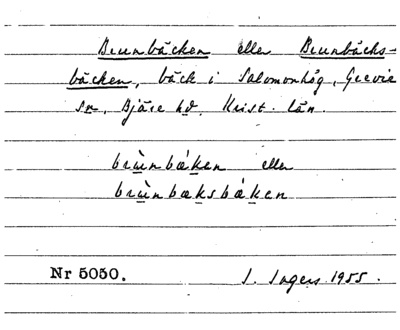 Brunbäcken eller Brunbäcks-
bäcken, bäck i Salomonhög, Grevie
sn, Bjäre hd, Krist. län.
brùnbǽken eller
brùnbæksbǽken
Nr 5050. I. Ingers 1955.